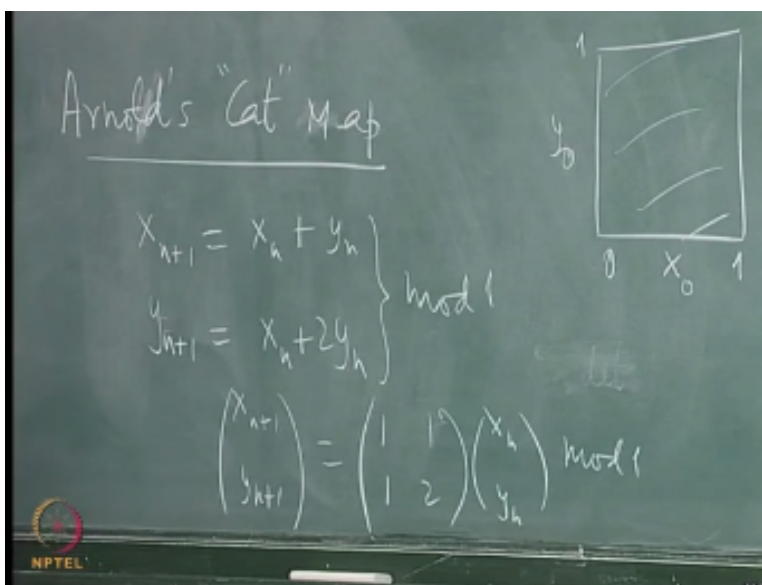 Arnold's "Cat" Map
1
y₀
0 x₀ 1
xₙ₊₁ = xₙ + yₙ
yₙ₊₁ = xₙ + 2yₙ } mod 1
(xₙ₊₁ yₙ₊₁) = (1 1 1 2) (xₙ yₙ) mod 1
NPTEL